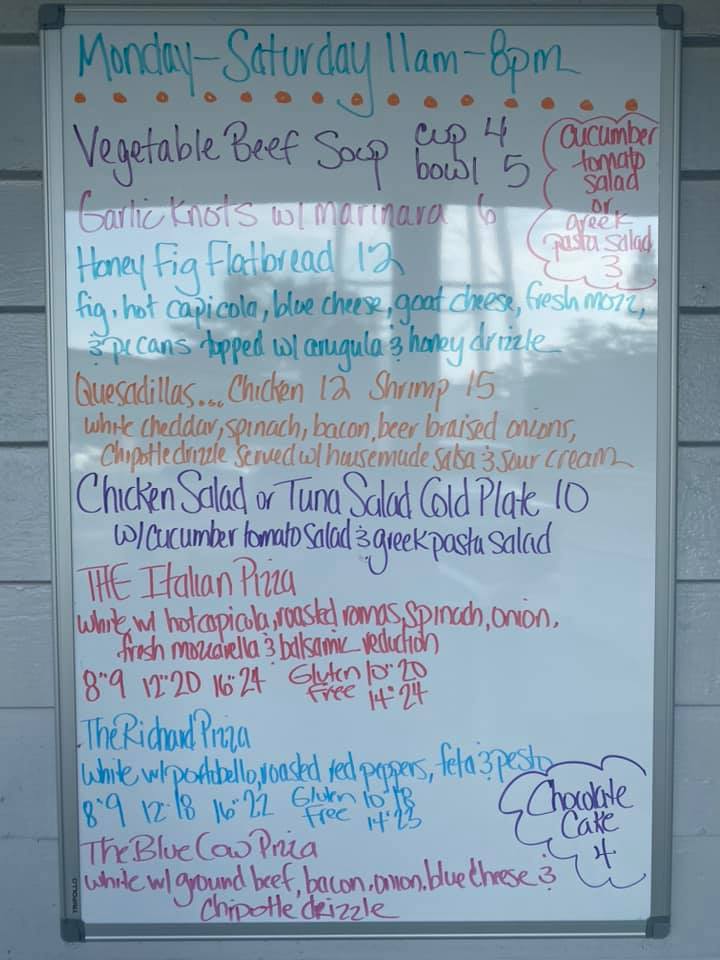 Monday-Saturday 11am-8pm
Vegetable Beef Soup cup 4
bowl 5
cucumber
tomato
salad
or
greek
pasta salad
3
Garlic Knots w/ marinara 6
Honey Fig Flatbread 12
fig, hot capicola, blue cheese, goat cheese, fresh mozz,
& pecans topped w/ arugula & honey drizzle
Quesadillas... Chicken 12 Shrimp 15
white cheddar, spinach, bacon, beer braised onions,
Chipotle drizzle served w/ housemade salsa & sour cream
Chicken Salad or Tuna Salad Cold Plate 10
w/ cucumber tomato salad & greek pasta salad
THE Italian Pizza
white w/ hot capicola, roasted romas, spinach, onion,
fresh mozzarella & balsamic reduction
8" 9 12" 20 16" 24 Gluten Free 10" 20
14" 24
The Richard Pizza
white w/ portabello, roasted red peppers, feta & pesto
8" 9 12" 18 16" 22 Gluten Free 10" 18
14" 23
Chocolate
Cake
4
The Blue Cow Pizza
white w/ ground beef, bacon, onion, blue cheese &
Chipotle drizzle
TRIPOLLO